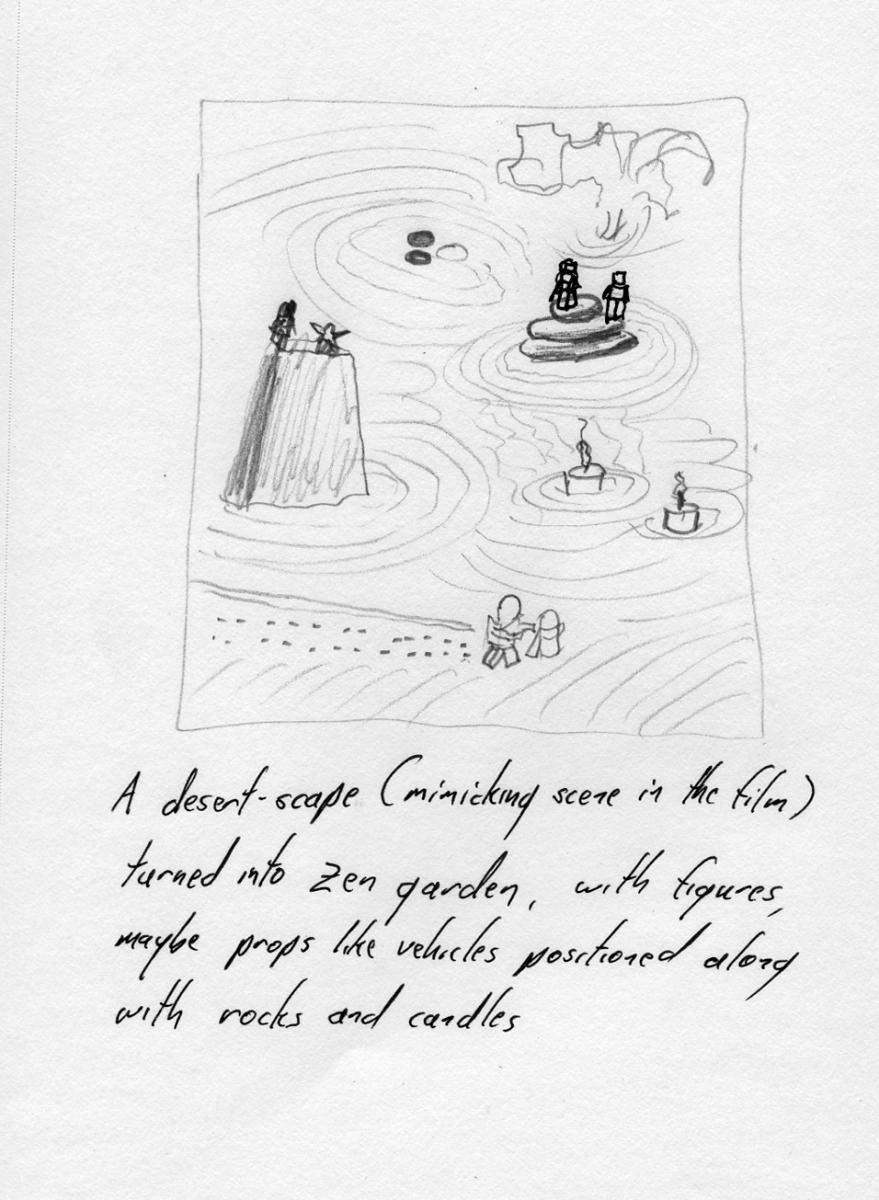 A desert-scape (mimicking scene in the film)
turned into Zen garden, with figures,
maybe props like vehicles positioned along
with rocks and candles